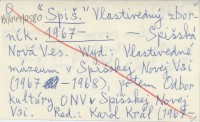 "Spiš". Vlastivedný zbor-
ník. 1967— . — Spišská
Nová Ves. Vyd.: Vlastivedné
múzeum v Spišskej Novej Vsi
(1967 — 1968), potom Odbor
kultúry ONV v Spišskej Novej
Vsi. Red.: Karol Kráľ (1967